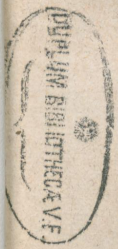 DVPLVM BIBLIOTHECÆ V.E.